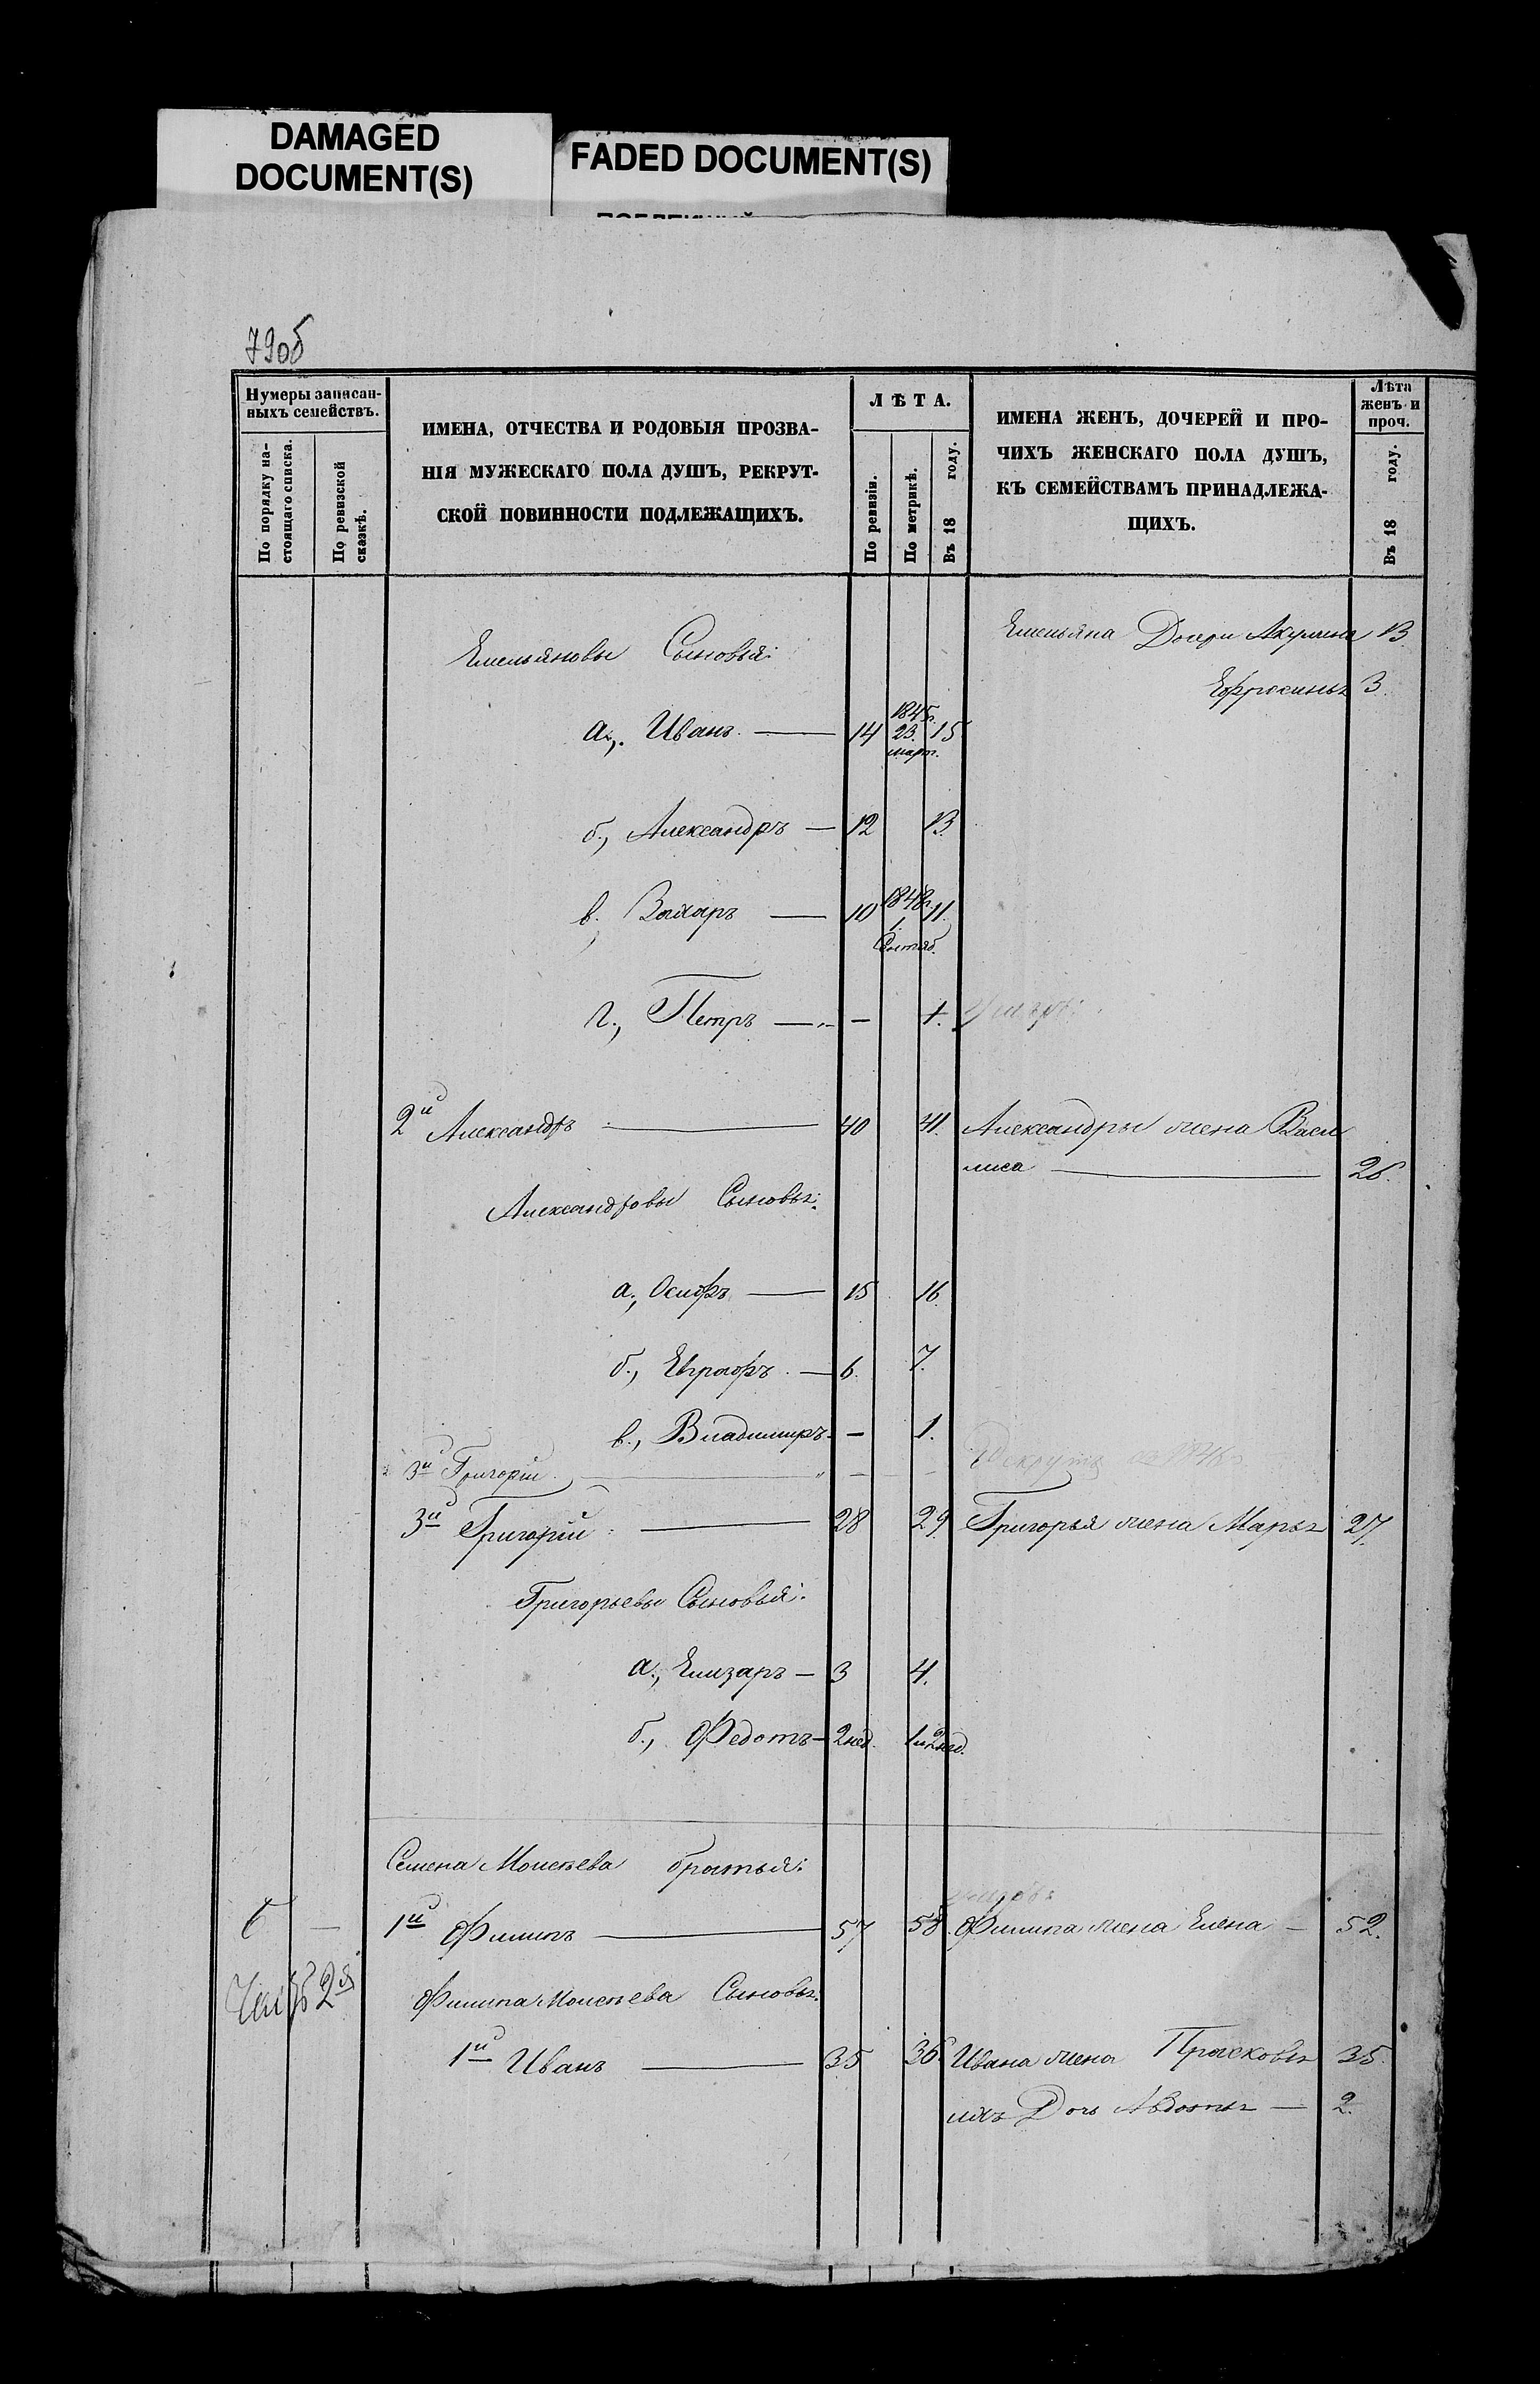 DAMAGED
DOCUMENT(S)
FADED DOCUMENT(S)
790б
Нумеры записан-
ныхъ семействъ.
По порядку на-
стоящаго списка.
По ревизской
сказкѣ.
ИМЕНА, ОТЧЕСТВА И РОДОВЫЯ ПРОЗВА-
НІЯ МУЖЕСКАГО ПОЛА ДУШЪ, РЕКРУТ-
СКОЙ ПОВИННОСТИ ПОДЛЕЖАЩИХЪ.
ЛѢТА.
По ревизіи.
По метрикѣ.
Въ 18 году.
ИМЕНА ЖЕНЪ, ДОЧЕРЕЙ И ПРО-
ЧИХЪ ЖЕНСКАГО ПОЛА ДУШЪ,
КЪ СЕМЕЙСТВАМЪ ПРИНАДЛЕЖА-
ЩИХЪ.
Лѣта
женъ и
проч.
Въ 18 году.
Емельяна Дочери Акулина 13.
Емельяновы Сыновья:
Ефросинья 3.
а., Иванъ — 14 1845г. 23. март. 15
б., Александръ — 12 13.
в., Захаръ — 10 1848г. 1. Сентяб. 11.
г., Петръ — — 1. Умеръ.
2й Александръ — 40 41. Александры жена Васи
лиса — 26.
Александровы Сыновья:
а., Осифъ — 15 16
б., Евграфъ — 6. 7.
в., Владимиръ — 1.
3й Григорій — Рекрутъ 1846г.
3й Григорій — 28 29. Григорья жена Марья 27.
Григорьевы Сыновья:
а., Елизаръ — 3 4.
б., Федотъ — 2 нед. 1 и 2 нед.
Семена Моисеева братья:
умеръ
6 — 1й Филипъ — 57 58. Филипа жена Елена — 52.
Часть 2я
Филипа Моисеева Сыновья:
1й Иванъ — 35 36. Ивана жена Прасковья 35.
ихъ Дочь Авдотья — 2.